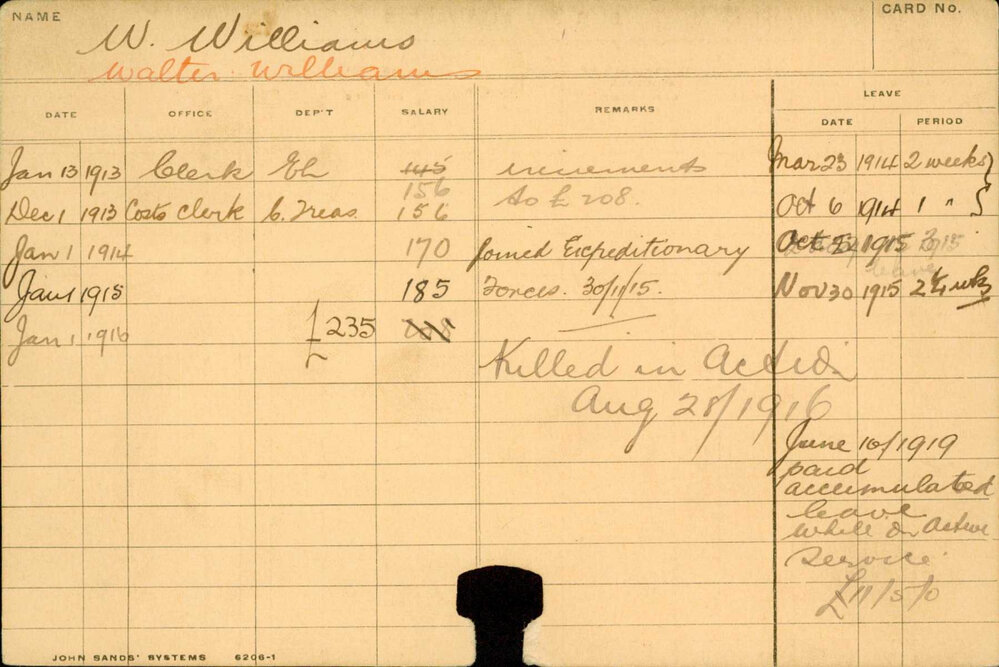 NAME
CARD No.
W. Williams
Walter Williams
LEAVE
DATE OFFICE DEP'T SALARY REMARKS DATE PERIOD
Jan 13 1913 Clerk Eh 145 increments Mar 23 1914 2 weeks
156 to £208.
Dec 1 1913 Costs Clerk C. Treas. 156 Oct 6 1914 1 "
Jan 1 1914 170 Joined Expeditionary Oct 1915
leave
Jan 1 1915 185 Forces. 30/11/15. Nov 30 1915 2 1/4 wks
Jan 1 1916 £235 208
Killed in Action
Aug 28/1916
June 10/1919
paid
accumulated
leave
while on Active
Service.
£11/5/0
JOHN SANDS' SYSTEMS 6206-1